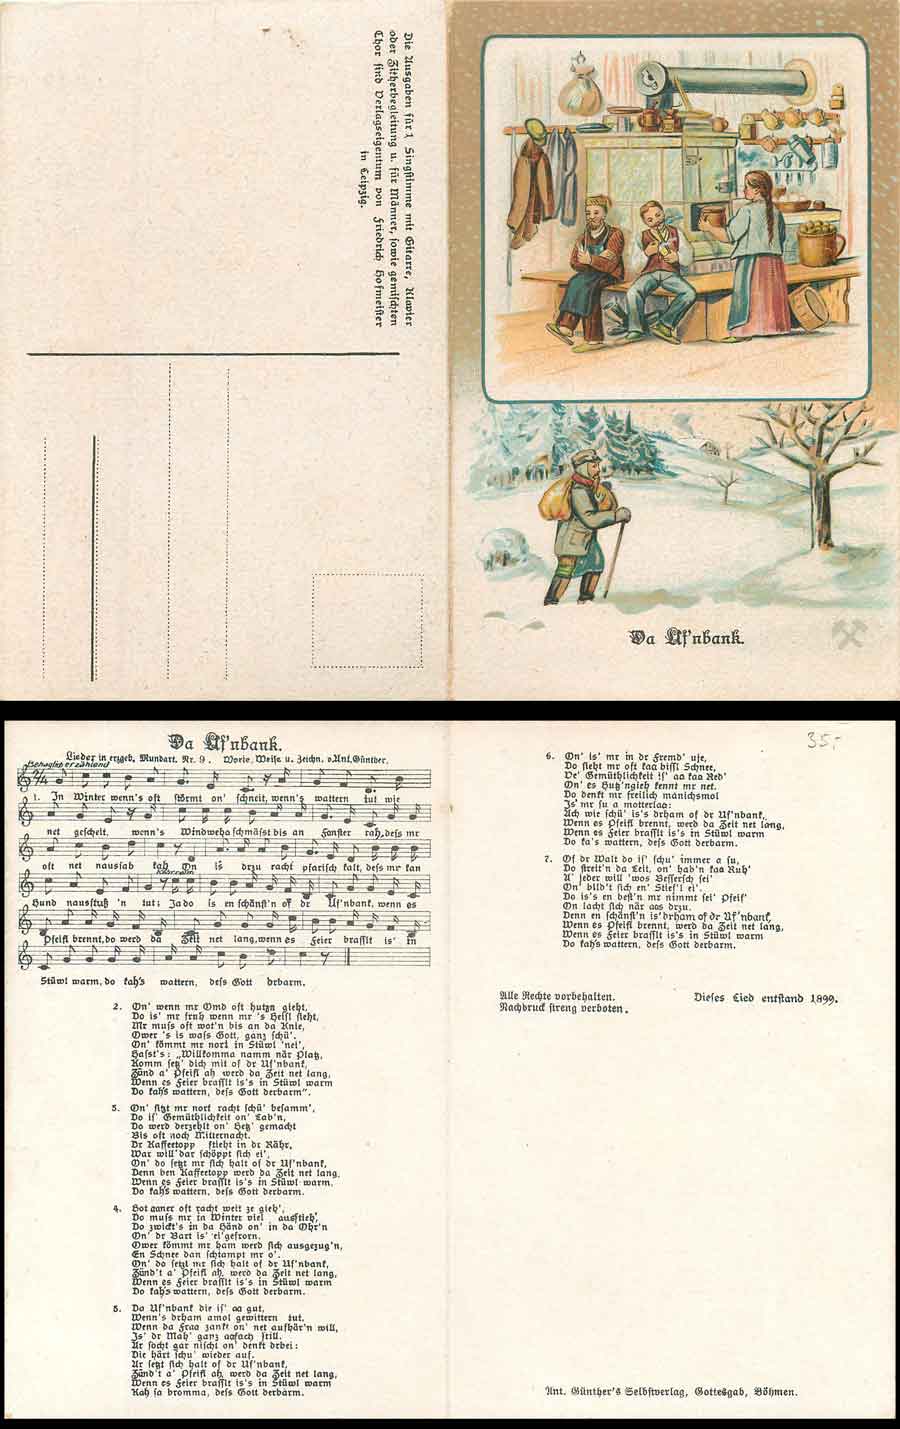 Die Ausgaben für 1 Singstimme mit Gitarre, Klavier
oder Zitherbegleitung u. für Männer, sowie gemischten
Chor sind Verlagseigentum von Friedrich Hofmeister
in Leipzig.
Da Uf'nbank.
Da Uf'nbank.
Lieder in erzgeb. Mundart. Nr. 9. Worte, Weise u. Zeichn. v. Ant. Günther.
Behaglich erzählend
2/4
1. In Winter wenn's oft störmt on' schneit, wenn's wattern tut wie
net gescheit, wenn's Windweha schmässt bis an Fanster rah, dess mr
oft net naussah kah On is drzu racht pfarisch kalt, dess mr kan
Hund nausstuß 'n tut; Ja do is en schänst'n of dr Uf'nbank, wenn es
Pfeifl brennt, do werd da Zeit net lang, wenn es Feier brasslt is' in
Stüwl warm, do kah's wattern, dess Gott drbarm.
2. On' wenn mr Omd oft hutzn gieht,
Do is' mr fruh wenn mr 's Heisl sieht,
Mr muss oft wot'n bis an da Knie,
Ower 's is wass Gott, ganz schü'.
On' kömmt mr nort in Stüwl 'nei',
Hasst's: „Willkomma namm när Platz,
Komm setz' dich mit of dr Uf'nbank,
Zünd a' Pfeifl ah werd da Zeit net lang,
Wenn es Feier brasslt is's in Stüwl warm
Do kah's wattern, dess Gott derbarm".
3. On' sitzt mr nort racht schü' besamm',
Do is' Gemüthlichkeit on' Lab'n,
Do werd derzehlt on' Hetz' gemacht
Bis oft noch Mitternacht.
Dr Kaffeetopp stieht in dr Rähr,
War will' dar schöppt sich ei',
On' do setzt mr sich halt of dr Uf'nbank,
Denn ben Kaffeetopp werd da Zeit net lang,
Wenn es Feier brasslt is's in Stüwl warm,
Do kah's wattern, dess Gott derbarm.
4. Hot aaner oft racht weit ze gieh',
Do muss mr in Winter viel ausstieh',
Do zwickt's in da Händ on' in da Ohr'n
On' dr Bart is' ei'gefrorn.
Ower kömmt mr ham werd sich ausgezug'n,
En Schnee dan schtampt mr o'.
On' do setzt mr sich halt of dr Uf'nbank,
Zünd't a' Pfeifl ah, werd da Zeit net lang,
Wenn es Feier brasslt is's in Stüwl warm
Do kah's wattern, dess Gott derbarm.
5. Da Uf'nbank die is' aa gut,
Wenn's drham amol gewittern tut.
Wenn da Fraa zankt on' net aufhär'n will,
Is' dr Mah' ganz aafach still.
Ar socht gar nischt on' denkt drbei:
Die härt schu' wieder auf.
Ar setzt sich halt of dr Uf'nbank,
Zünd't a' Pfeifl ah, werd da Zeit net lang,
Wenn es Feier brasslt is's in Stüwl warm
Kah sa bromma, dess Gott derbarm.
35,-
6. On' is' mr in dr Fremd' uje,
Do sieht mr oft kaa bissl Schnee,
De' Gemüthlichkeit is' aa kaa Red'
On' es Hutz'ngieh kennt mr net.
Do denkt mr freilich mánichsmol
Is' mr su a motterlaa:
Ach wie schü' is's drham of dr Uf'nbank,
Wenn es Pfeifl brennt, werd da Zeit net lang,
Wenn es Feier brasslt is's in Stüwl warm
Do ka's wattern, dess Gott derbarm.
7. Of dr Walt do is' schu' immer a su,
Do streit'n da Leit, on' hab'n kaa Ruh'
A' jeder will 'wos Bessersch sei'
On' bild't sich en' Stief'l ei'.
Do is's en best'n mr nimmt sei' Pfeif'
On lacht sich när aos drzu.
Denn en schänst'n is' drham of dr Uf'nbank,
Wenn es Pfeifl brennt, werd da Zeit net lang,
Wenn es Feier brasslt is's in Stüwl warm
Do kah's wattern, dess Gott derbarm.
Alle Rechte vorbehalten.
Nachdruck streng verboten.
Dieses Lied entstand 1899.
Ant. Günther's Selbstverlag, Gottesgab, Böhmen.